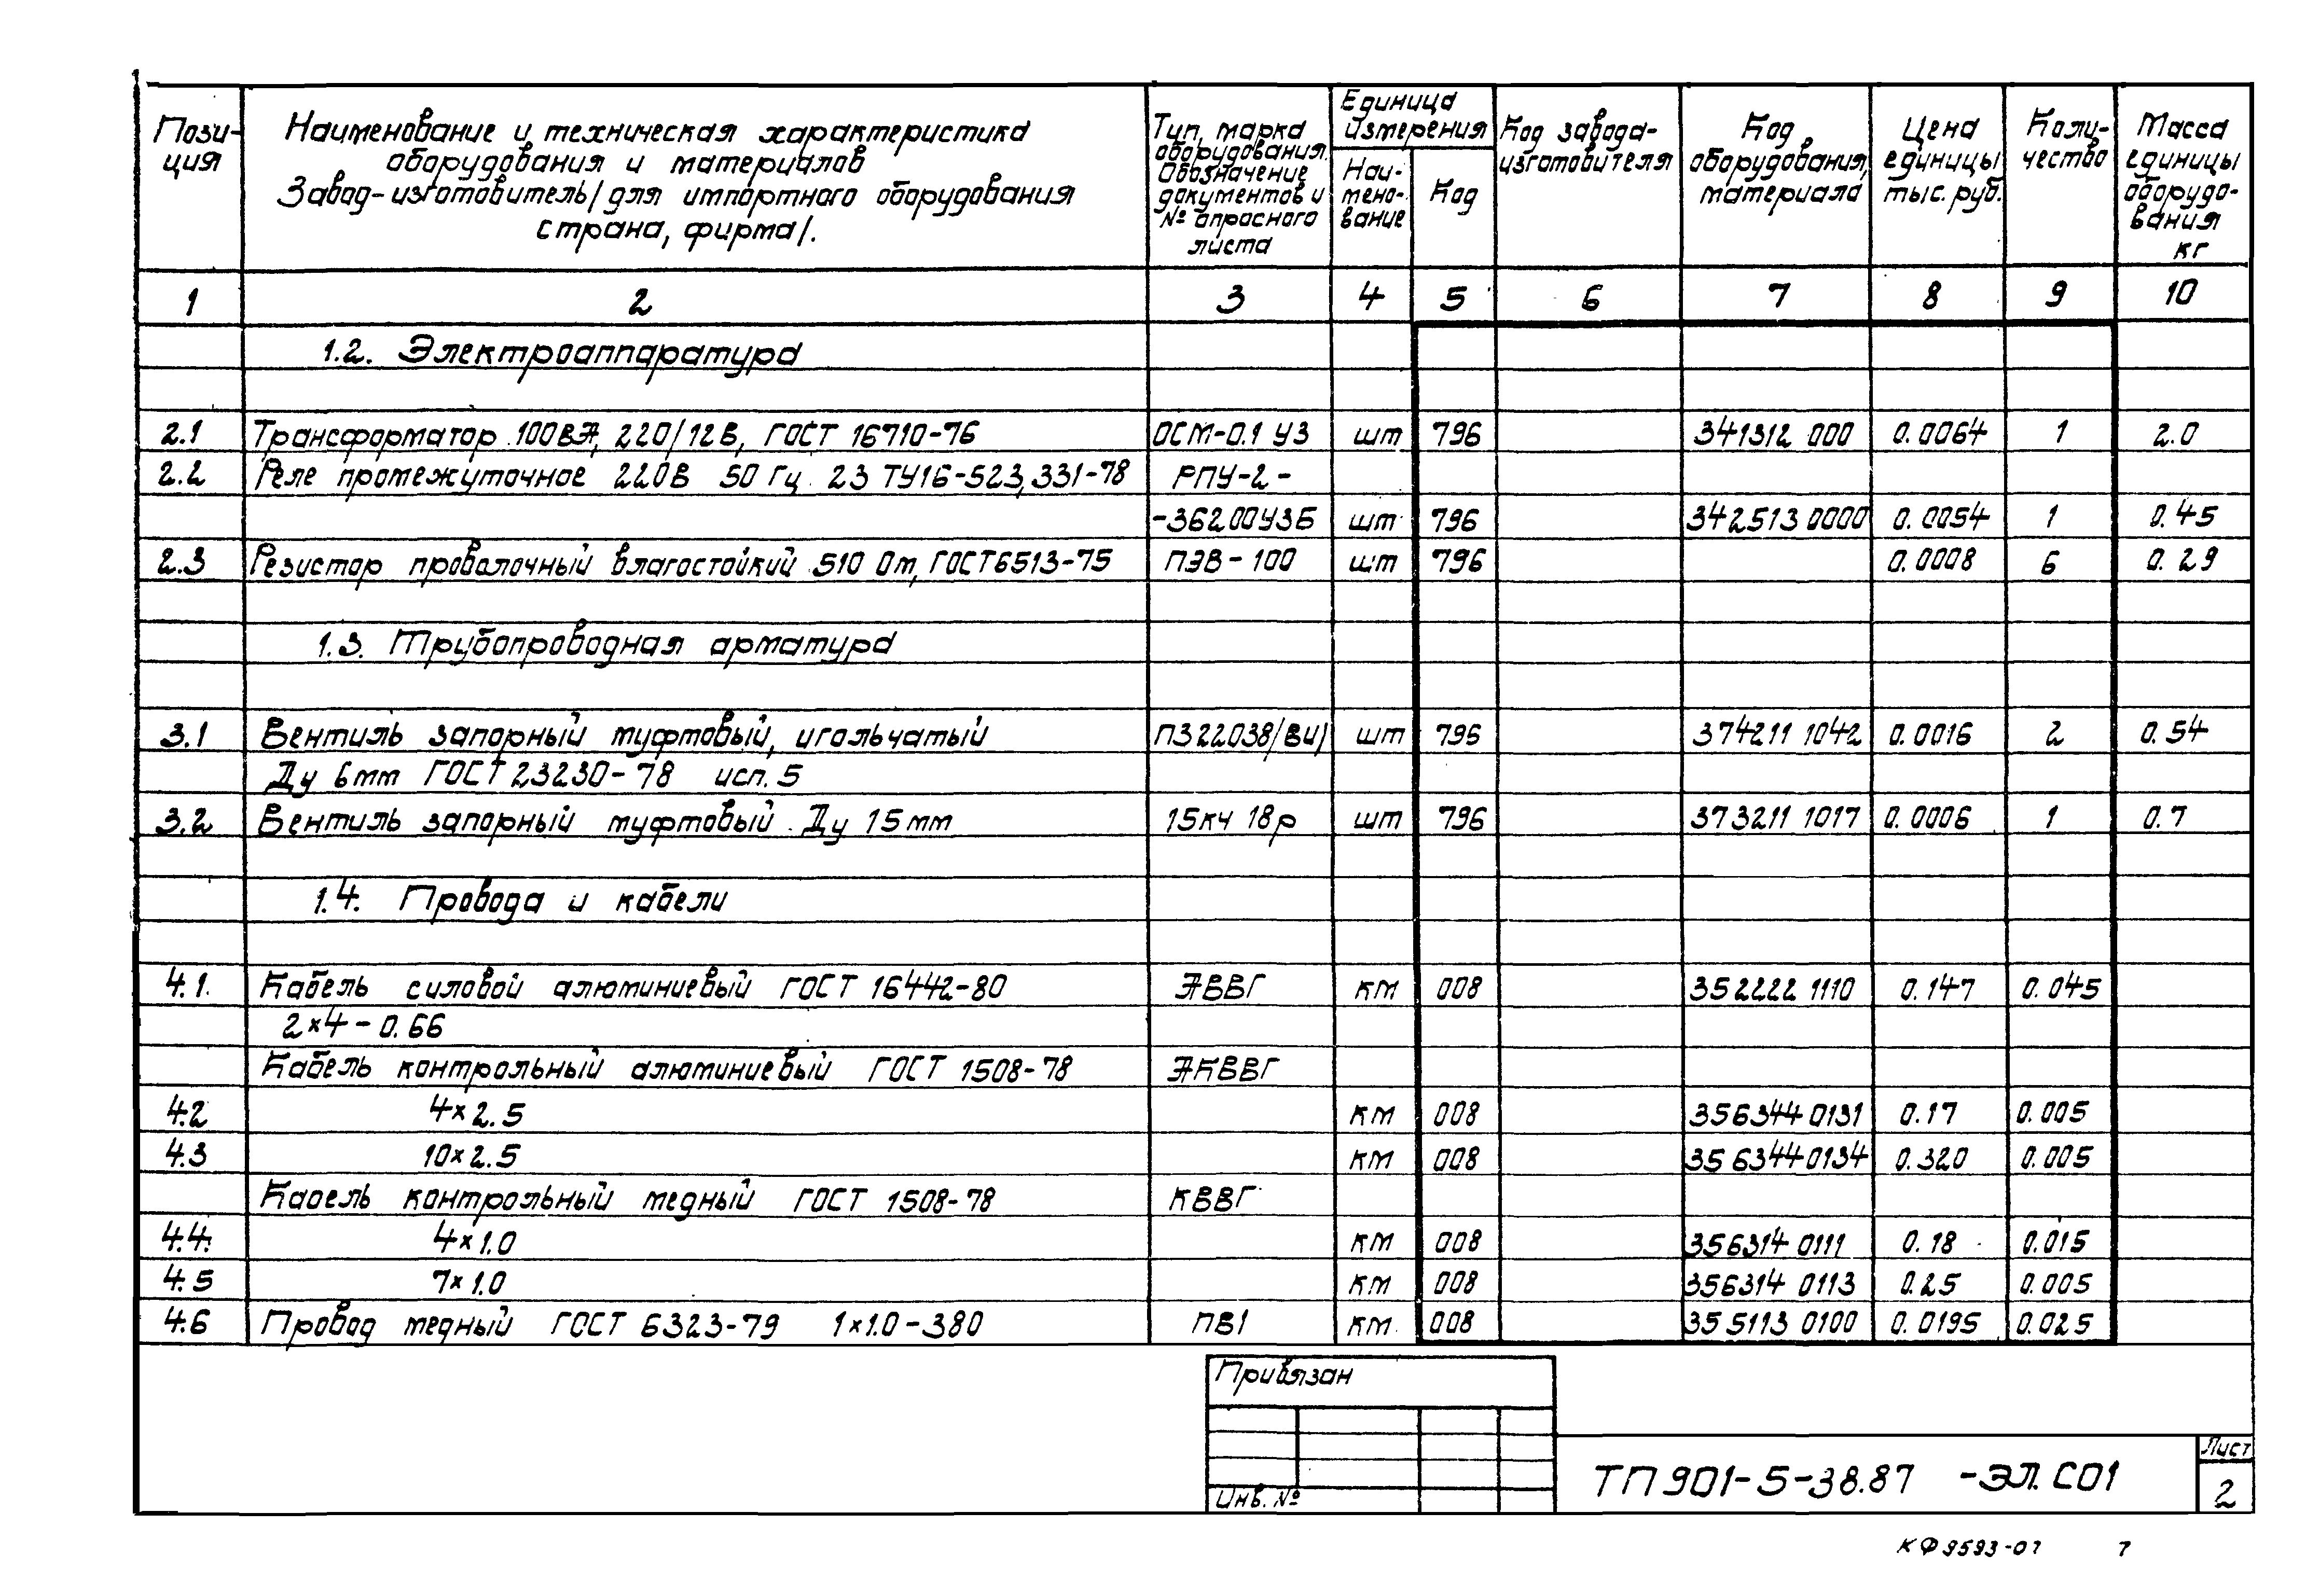 Пози-
ция
Наименование и техническая характеристика
оборудования и материалов
Завод-изготовитель/для импортного оборудования
страна, фирма/.
Тип, марка
оборудования.
Обозначение
документов и
№ опросного
листа
Единица
измерения
Наи-
мено-
вание
Код
Код завода-
изготовителя
Код
оборудования,
материала
Цена
единицы
тыс. руб.
Коли-
чество
Масса
единицы
оборудо-
вания
кг
1 2 3 4 5 6 7 8 9 10
1.2. Электроаппаратура
2.1 Трансформатор 100ВА, 220/12В, ГОСТ 16710-76 ОСМ-0.1 У3 шт 796 341312 000 0.0064 1 2.0
2.2 Реле промежуточное 220В 50 Гц 23 ТУ16-523,331-78 РПУ-2-
-36200У3Б шт 796 342513 0000 0.0054 1 0.45
2.3 Резистор проволочный влагостойкий 510 Ом, ГОСТ6513-75 ПЭВ-100 шт 796 0.0008 6 0.29
1.3. Трубопроводная арматура
3.1 Вентиль запорный муфтовый, игольчатый ПЗ22038/ВИ/ шт 796 374211 1042 0.0016 2 0.54
Ду 6мм ГОСТ 23230-78 исп. 5
3.2 Вентиль запорный муфтовый Ду 15мм 15кч 18р шт 796 373211 1017 0.0006 1 0.7
1.4. Провода и кабели
4.1. Кабель силовой алюминиевый ГОСТ 16442-80 АВВГ км 008 352222 1110 0.147 0.045
2×4-0.66
Кабель контрольный алюминиевый ГОСТ 1508-78 АКВВГ
4.2 4×2.5 км 008 356344 0131 0.17 0.005
4.3 10×2.5 км 008 356344 0134 0.320 0.005
Кабель контрольный медный ГОСТ 1508-78 КВВГ
4.4. 4×1.0 км 008 356314 0111 0.18 0.015
4.5 7×1.0 км 008 356314 0113 0.25 0.005
4.6 Провод медный ГОСТ 6323-79 1×1.0-380 ПВ1 км 008 355113 0100 0.0195 0.025
Привязан
Инв. №
ТП 901-5-38.87 -ЭЛ.СО1
Лист
2
КФ 9593-07 7